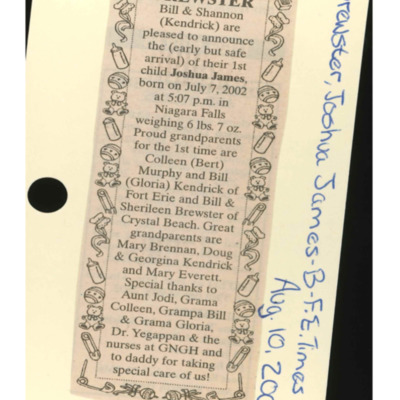 Bill & Shannon
(Kendrick) are
pleased to announce
the (early but safe
arrival) of their 1st
child Joshua James,
born on July 7, 2002
at 5:07 p.m. in
Niagara Falls
weighing 6 lbs. 7 oz.
Proud grandparents
for the 1st time are
Colleen (Bert)
Murphy and Bill
(Gloria) Kendrick of
Fort Erie and Bill &
Sherileen Brewster of
Crystal Beach. Great
grandparents are
Mary Brennan, Doug
& Georgina Kendrick
and Mary Everett.
Special thanks to
Aunt Jodi, Grama
Colleen, Grampa Bill
& Grama Gloria,
Dr. Yegappan & the
nurses at GNGH and
to daddy for taking
special care of us!
rewster, Joshua James-B-F.E. Times
Aug. 10, 200